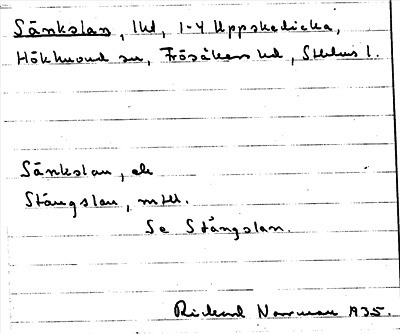 Sänkslan, lhd, 1-4 Uppskedicka,
Hökhuvud sn, Frösåkers hd, Sthlms l.
Sänkslan, ek
Stängslan, mtll.
Se Stängslan.
Rickard Norrman 1935.